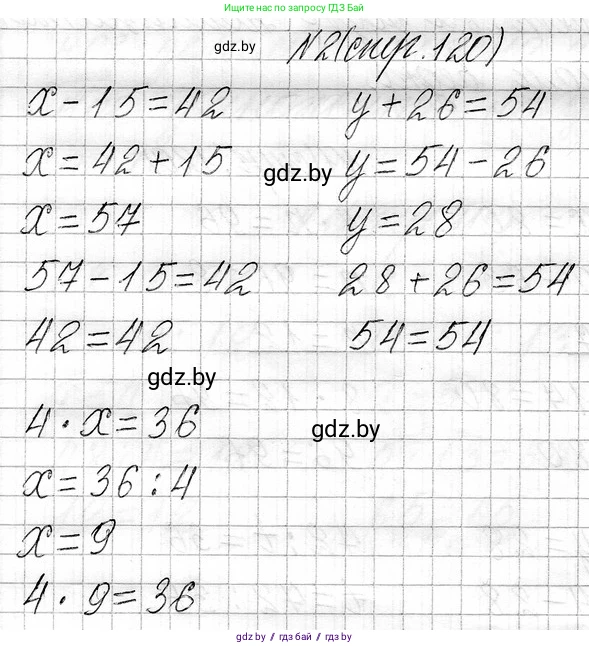 Ищите нас в интернете по запросу ГДЗ Бай
gdz.by
N2(стр.120)
x - 15 = 42
y + 26 = 54
x = 42 + 15
gdz.by
y = 54 - 26
x = 57
y = 28
57 - 15 = 42
28 + 26 = 54
42 = 42
54 = 54
gdz.by
4 · x = 36
gdz.by
x = 36 : 4
x = 9
4 · 9 = 36
gdz.by / гдз бай / gdz.by